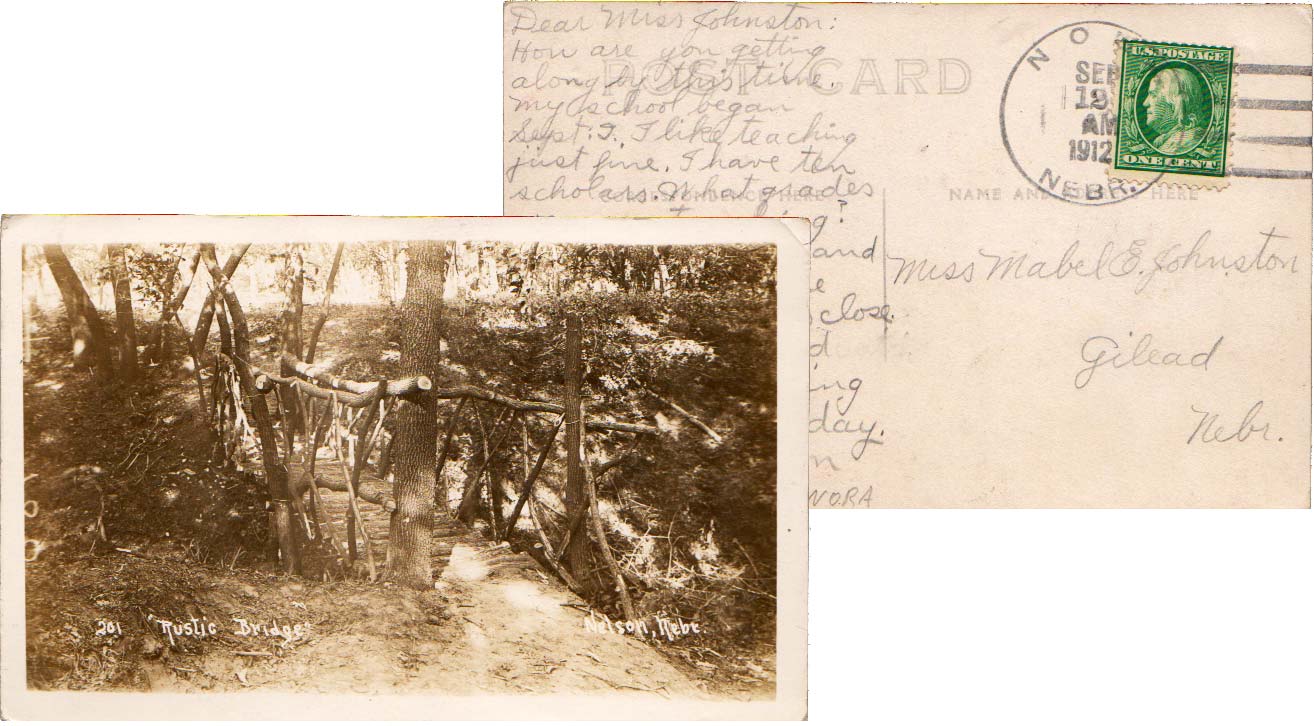 Dear Miss Johnston:
How are you getting
along by this time.
My school began
Sept. 2. I like teaching
just fine. I have ten
scholars. What grades
g?
and
e
close
d
ing
day.
n
NORA
POST CARD
CORRESPONDENCE HERE
NAME AND HERE
NO
SEP
19
AM
1912
NEBR.
U.S. POSTAGE
ONE CENT
Miss Mabel E. Johnston
Gilead
Nebr.
201 "Rustic Bridge"
Nelson, Nebr.